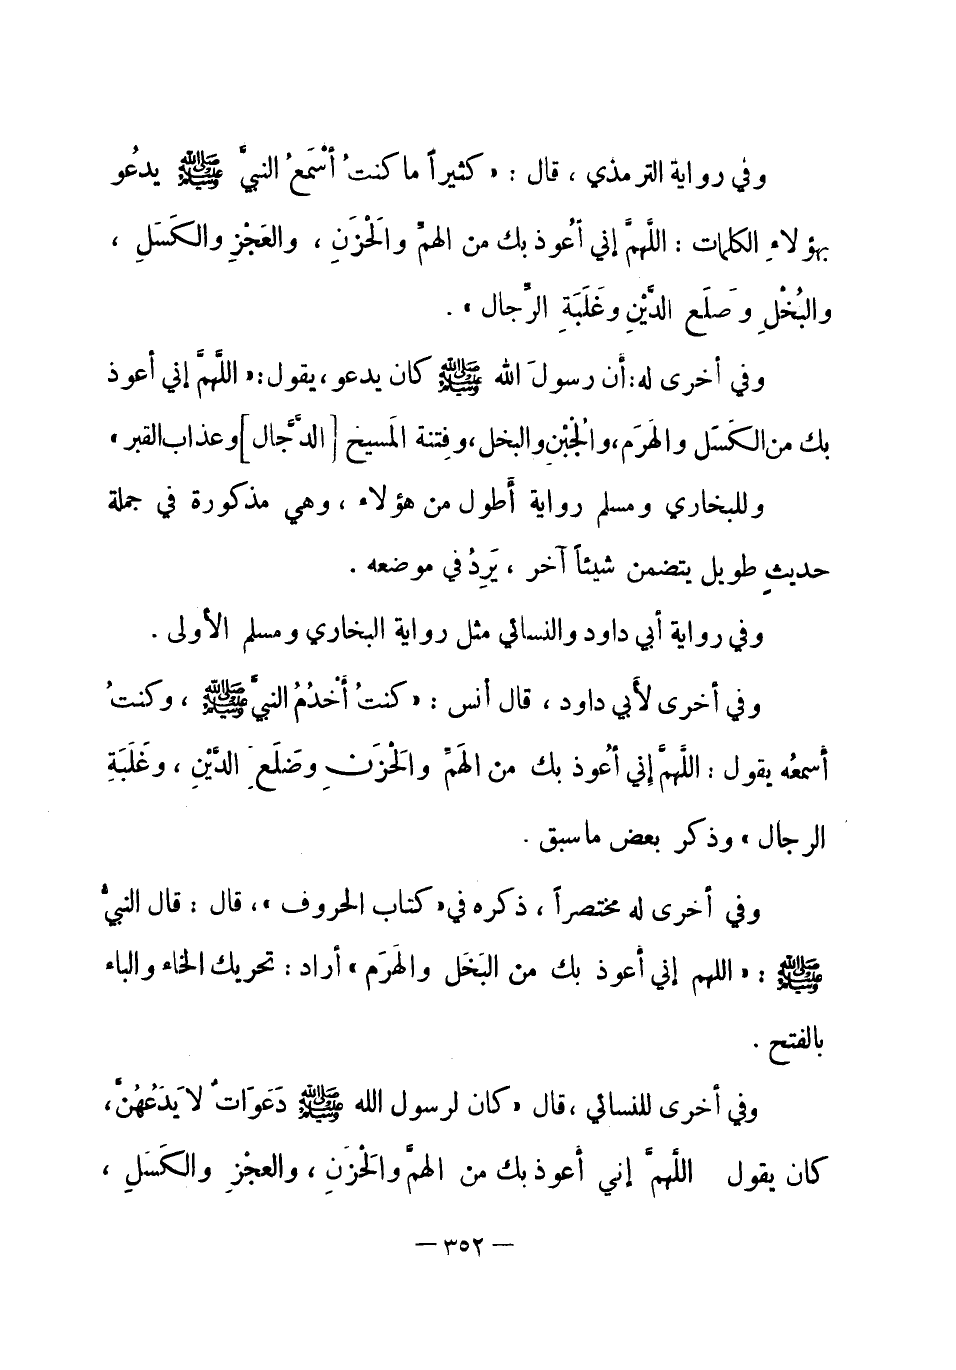 وفي رواية الترمذي ، قال : « كثيراً ما كنتُ أَسْمَعُ النبيَّ ﷺ يدعُو
بهؤلاءِ الكلمات : اللَّهمَّ إني أَعُوذ بك من الهمِّ والَحْزَنِ ، والعَجْزِ والكَسَلِ ،
والبُخْلِ وضَلَعِ الدَّيْنِ وغَلَبَةِ الرِّجال » .
وفي أخرى له : أَن رسولَ الله ﷺ كان يدعو ، يقول : « اللَّهمَّ إني أعوذ
بك من الكَسَل والهَرَمِ ، والْجبْنِ والبخل ، وفِتنة المَسيخ [ الدَّجَّال ] وعذاب القبر »
وللبخاري ومسلم رواية أَطول من هؤلاء ، وهي مذكورة في جملة
حديثٍ طويل يتضمن شيئاً آخر ، يَرِدُ في موضعه .
وفي رواية أبي داود والنسائي مثل رواية البخاري ومسلم الأولى .
وفي أخرى لأبي داود ، قال أنس : « كنتُ أَخْدُمُ النبيَّ ﷺ ، وكنتُ
أَسمعُه يقول : اللَّهمَّ إني أعُوذ بك من الهَمِّ والَحْزَنِ وضَلَعِ الدَّيْنِ ، وغَلَبَةِ
الرجال » وذكر بعض ما سبق .
وفي أخرى له مختصراً ، ذكره في « كتاب الحروف » ، قال : قال النبيُّ
ﷺ : « اللهم إني أَعوذ بك من البَخَل والهَرَم » أراد : تحريك الخاء والباء
بالفتح .
وفي أخرى للنسائي ، قال « كان لرسول الله ﷺ دَعَوَاتٌ لا يَدَعُهُنَّ ،
كان يقول اللَّهمَّ إني أَعوذ بك من الهمِّ والَحْزَنِ ، والعجْزِ والكَسَلِ ،
— ٣٥٢ —